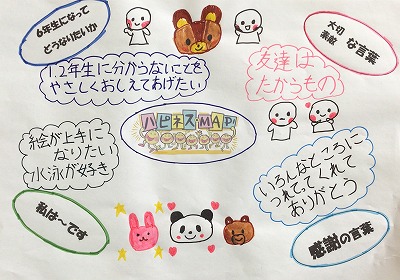 6年生になって
どうなりたいか
大切
素敵 な言葉
1.2年生に分かうないことを
やさしくおしえてあげたい
友達は
たからもの
ハピネスMAP
絵が上手に
なりたい
水泳が好き
いろんなところに
つれてってくれて
ありがとう
私は～です
感謝の言葉